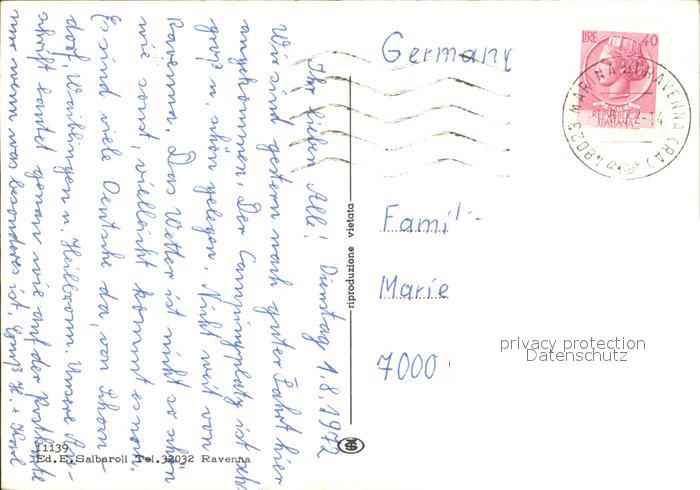 Ihr lieben Alle! Dienstag 1.8.1972
Wir sind gestern nach guter Fahrt hier
angekommen. Der Campingplatz ist sehr
groß u. schön gelegen. Nicht weit von
Ravenna. Das Wetter ist nicht so schön
wie sonst, vielleicht kommt es noch.
Es sind viele Deutsche da, von Schorn-
dorf, Waiblingen u. Heilbronn. Unsere An-
schrift lautet genau wie auf der Postkarte
nur wenn was besonderes ist. Gruß H. +
Germany
LIRE 40
REPUBBLICA
ITALIANA
48023 MARINA DI RAVENNA (RA)
Famil
Marie
7000
riproduzione vietata
privacy protection
Datenschutz
11139
Ed. E. Salbaroli Tel. 32032 Ravenna